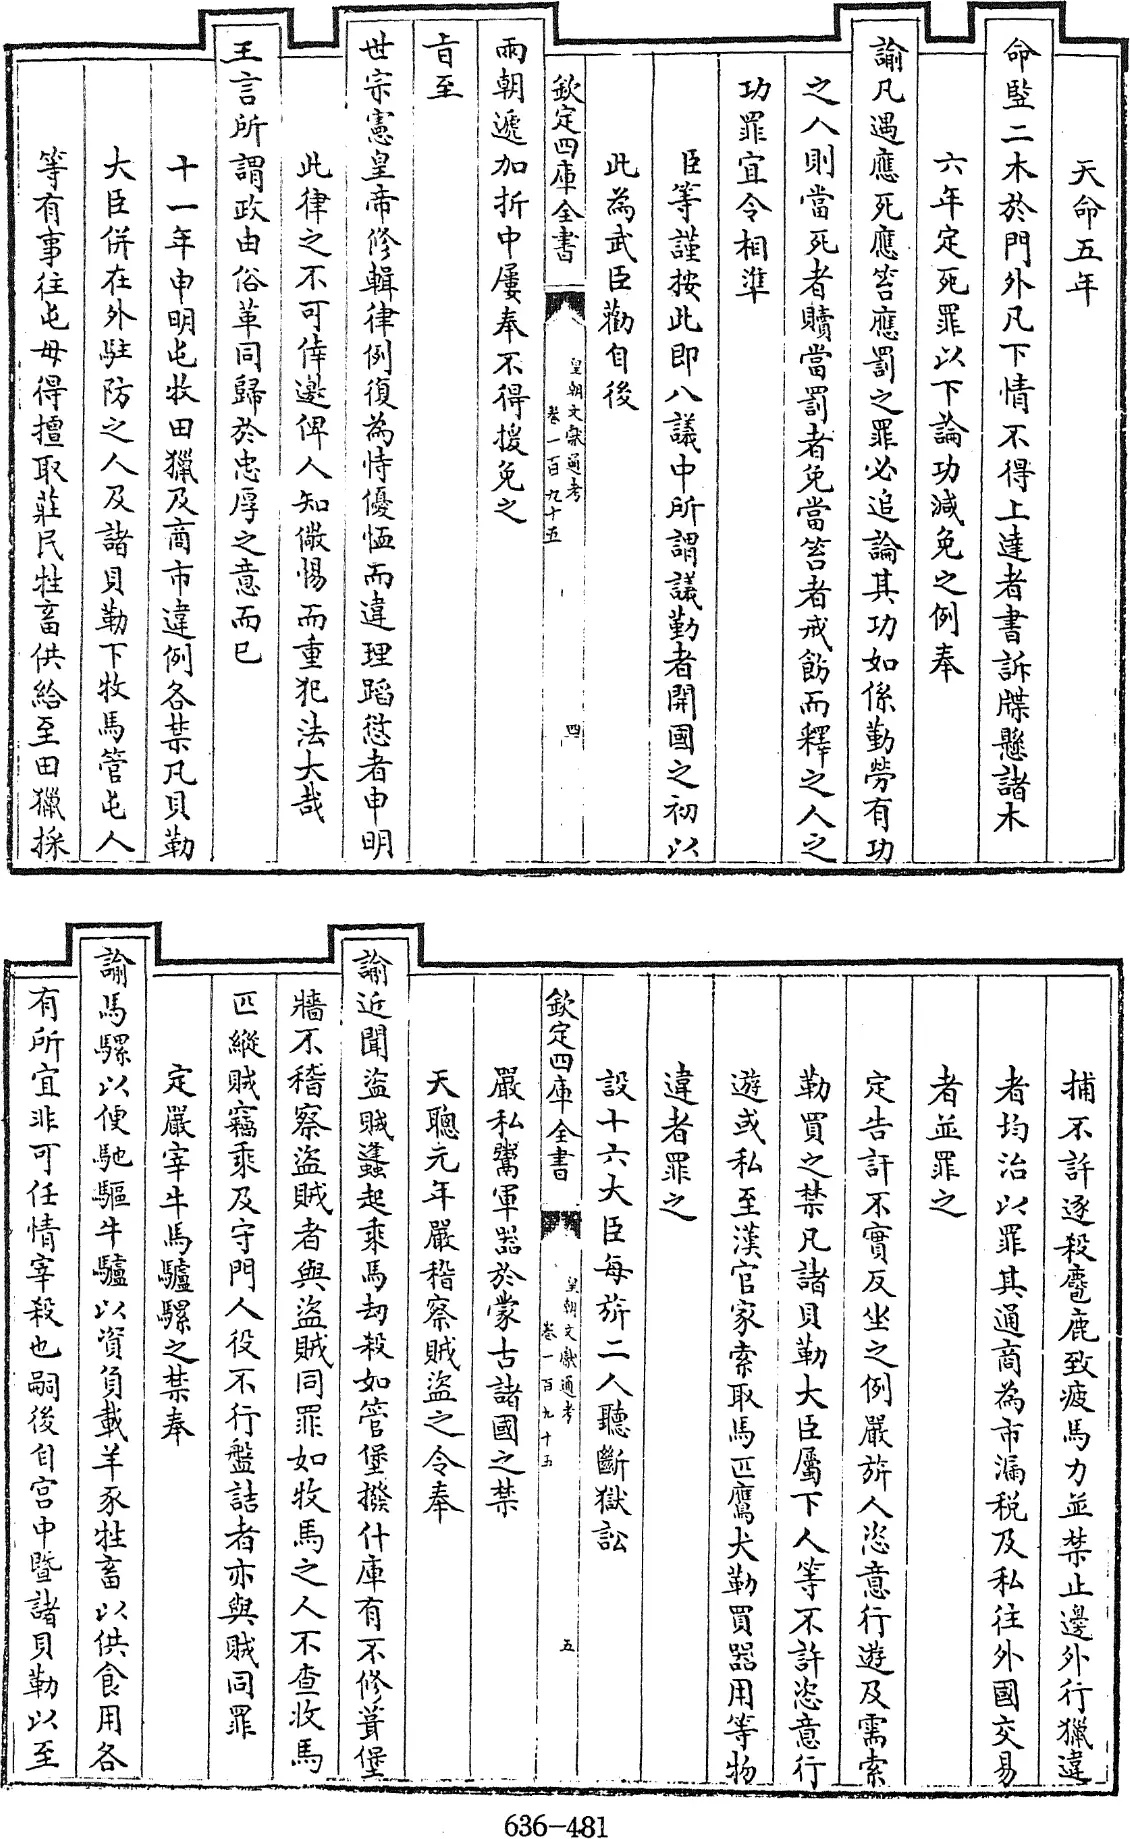 天命五年
命監二木於門外凡下情不得上達者書訴牒懸諸木
六年定死罪以下論功減免之例奉
諭凡遇應死應笞應罰之罪必追論其功如係勤勞有功
之人則當死者贖當罰者免當笞者戒飭而釋之人之
功罪宜令相準
臣等謹按此即八議中所謂議勤者開國之初以
此為武臣勸自後
欽定四庫全書
皇朝文獻通考
卷一百九十五
四
兩朝遞加折中屢奉不得援免之
㫖至
世宗憲皇帝修輯律例復為恃優恤而違理蹈愆者申明
此律之不可倖邀俾人知儆惕而重犯法大哉
王言所謂政由俗革同歸於忠厚之意而已
十一年申明屯牧田獵及商市違例各禁凡貝勒
大臣併在外駐防之人及諸貝勒下牧馬管屯人
等有事往屯毋得擅取莊民牲畜供給至田獵採
捕不許逐殺麞鹿致疲馬力並禁止邊外行獵違
者均治以罪其通商為市漏税及私往外國交易
者並罪之
定告訐不實反坐之例嚴旂人恣意行遊及需索
勒買之禁凡諸貝勒大臣屬下人等不許恣意行
遊或私至漢官家索取馬匹鷹犬勒買器用等物
違者罪之
設十六大臣每旂二人聽斷獄訟
欽定四庫全書
皇朝文獻通考
卷一百九十五
五
嚴私鬻軍器於蒙古諸國之禁
天聰元年嚴稽察賊盜之令奉
諭近聞盜賊蠭起乘馬刼殺如管堡撥什庫有不修葺堡
牆不稽察盜賊者與盜賊同罪如牧馬之人不查收馬
匹縱賊竊乘及守門人役不行盤詰者亦與賊同罪
定嚴宰牛馬驢騾之禁奉
諭馬騾以便馳驅牛驢以資負載羊豕牲畜以供食用各
有所宜非可任情宰殺也嗣後自宫中暨諸貝勒以至
636-481